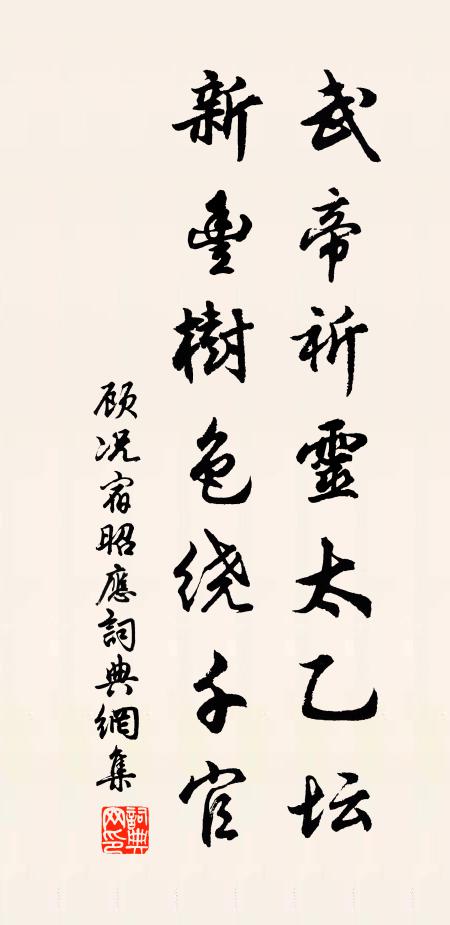 武帝祈靈太乙坛
新豊樹色绕千官
顾况宿昭應詞典網集
詞典网印